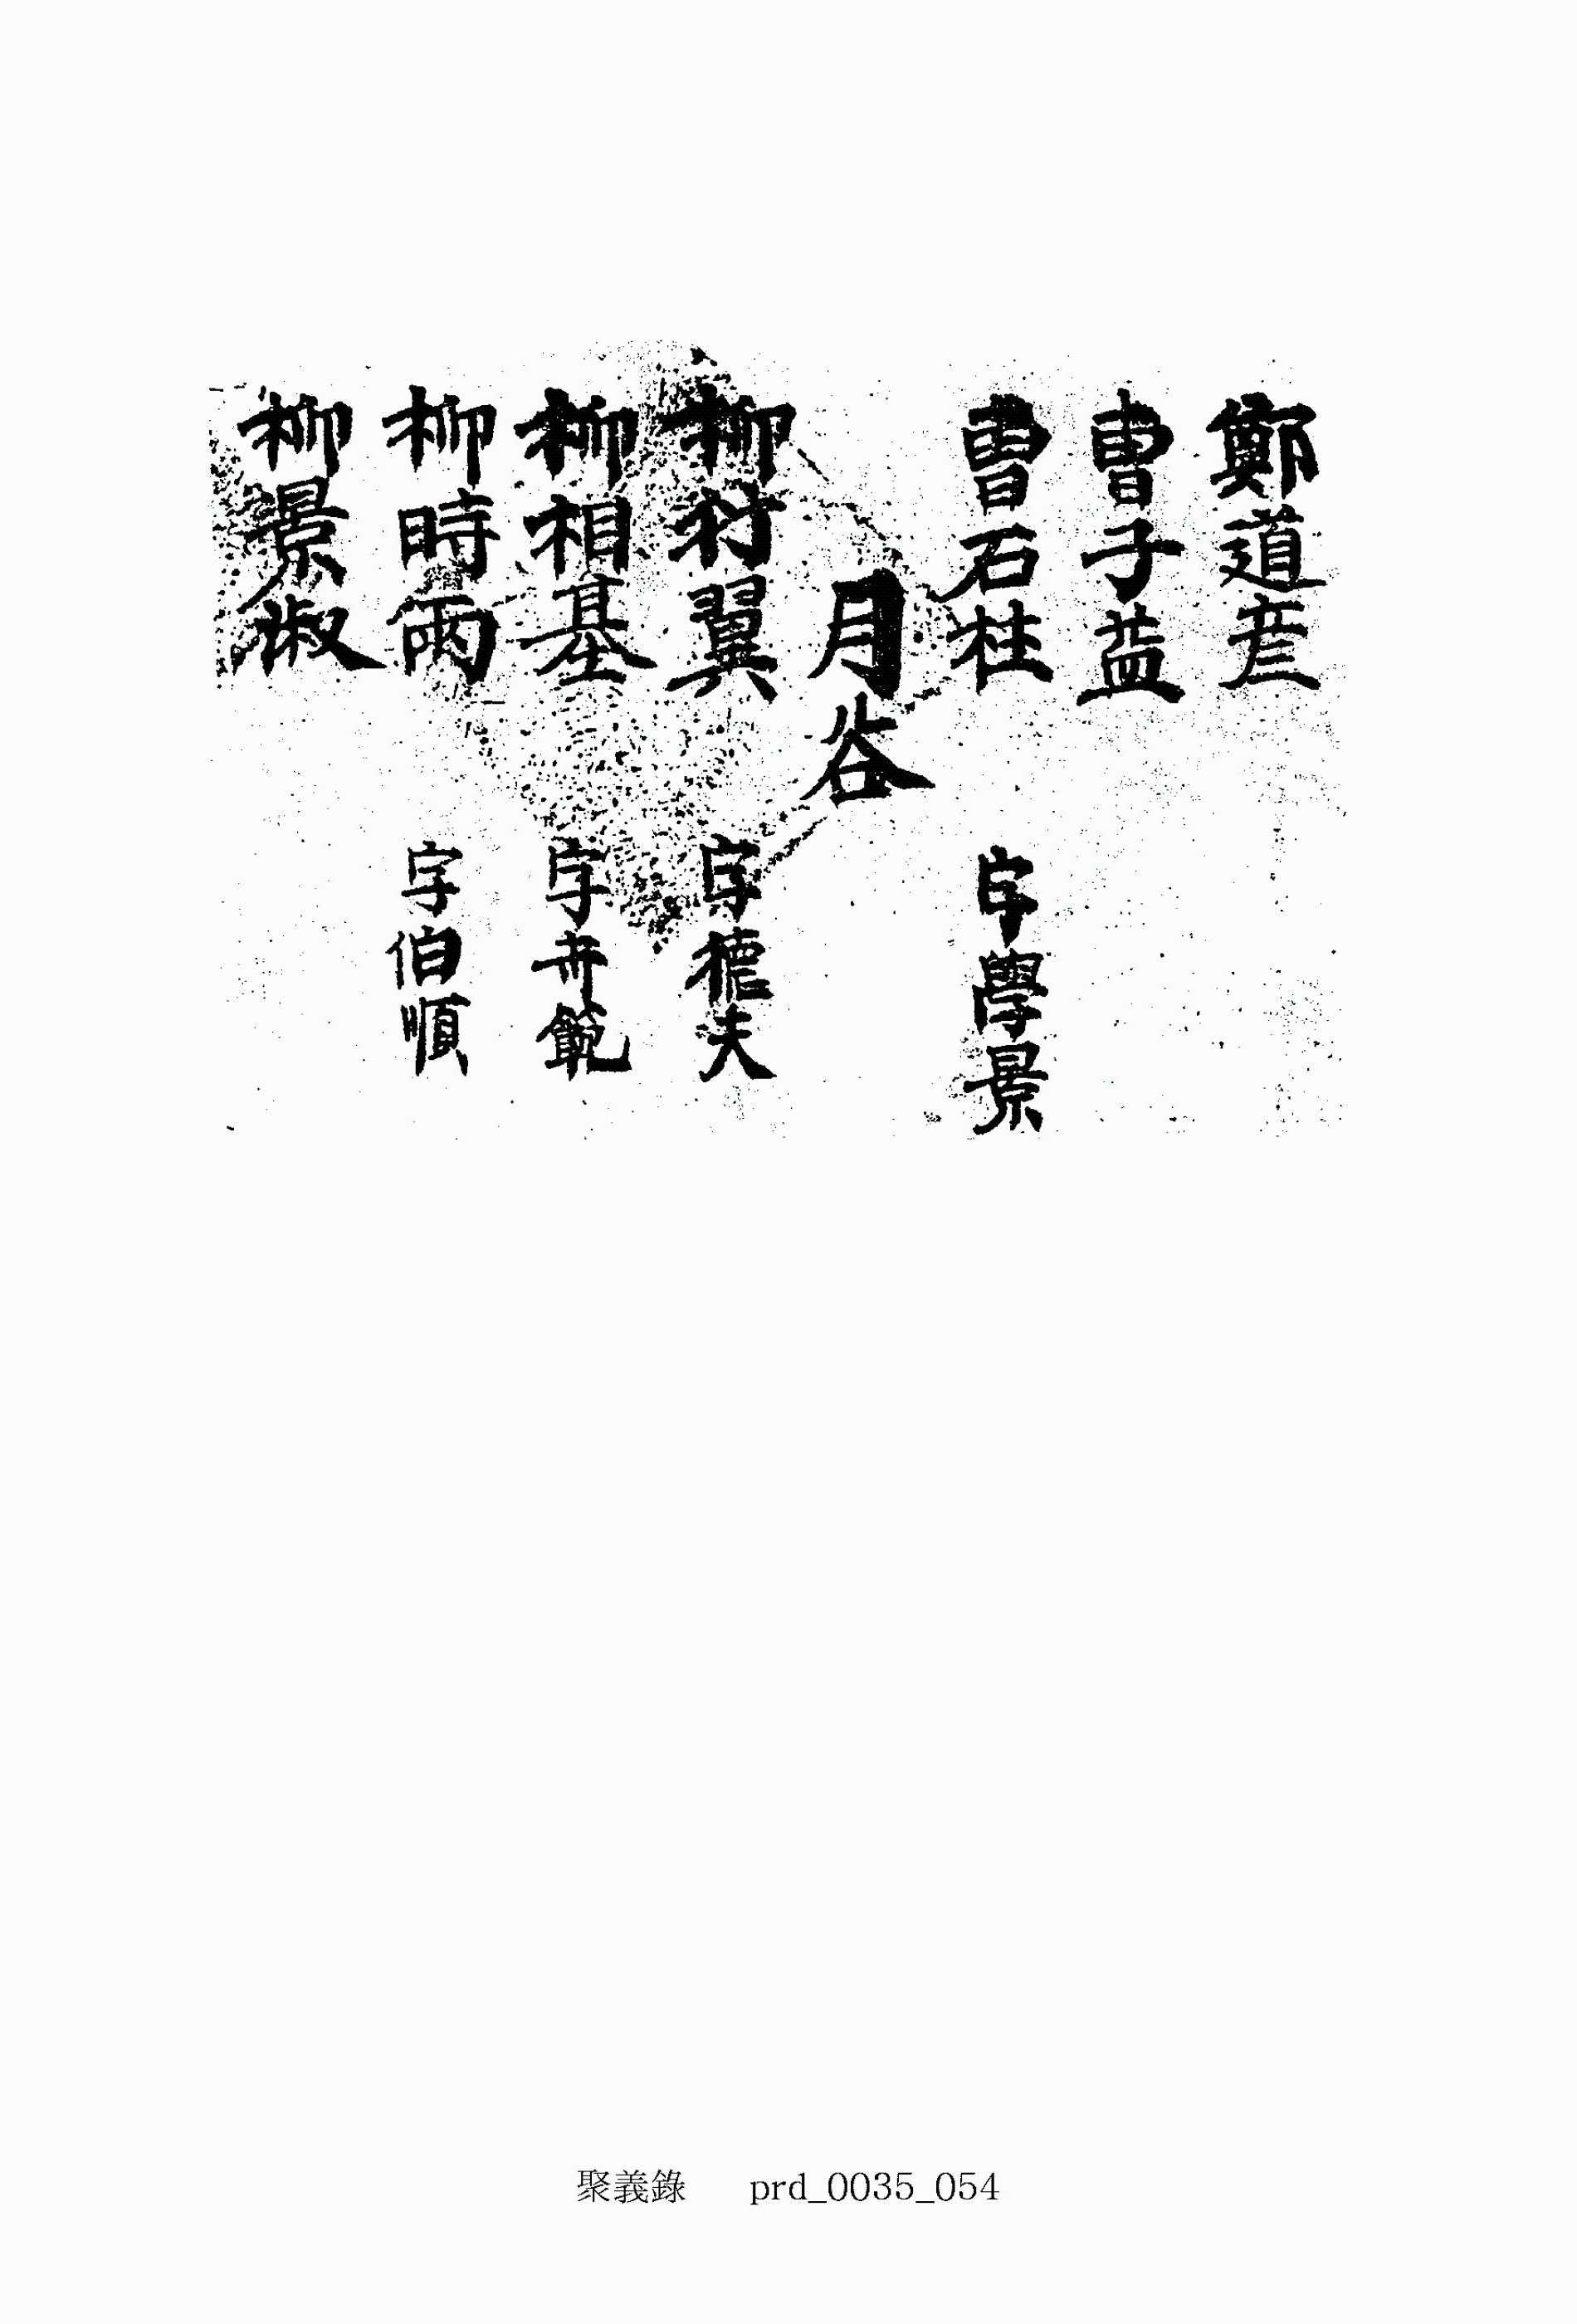 鄭道彦
曺子益
曺石柱 字學景
月谷
柳符翼 字德夫
柳相基 字世範
柳時雨 字伯順
柳景淑
聚義錄 prd_0035_054